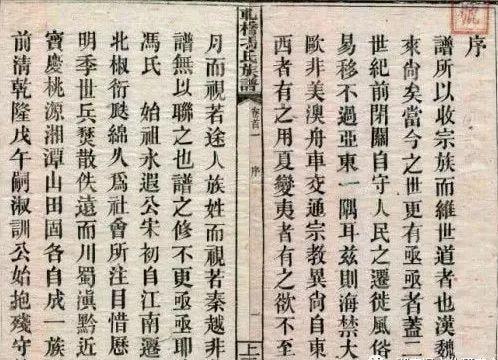 序
譜所以收宗族而維世道者也漢魏
來尙矣當今之世更有亟亟者蓋二
世紀前閉關自守人民之遷徙風俗
易移不過亞東一隅耳玆則海禁大
歐非美澳舟車交通宗教異尙自東
西者有之用夏變夷者有之欲不至
橋馮氏族譜 卷首一 序 上
月而視若途人族姓而視若秦越非
譜無以聯之也譜之修不更亟亟耶
馮氏 始祖永遐公宋初自江南遷
北椒衍瓞綿久爲社會所注目惜歷
明季世兵燹散佚遠而川蜀滇黔近
寶慶桃源湘潭山田固各自成一族
前清乾隆戊午嗣淑訓公始抱殘守